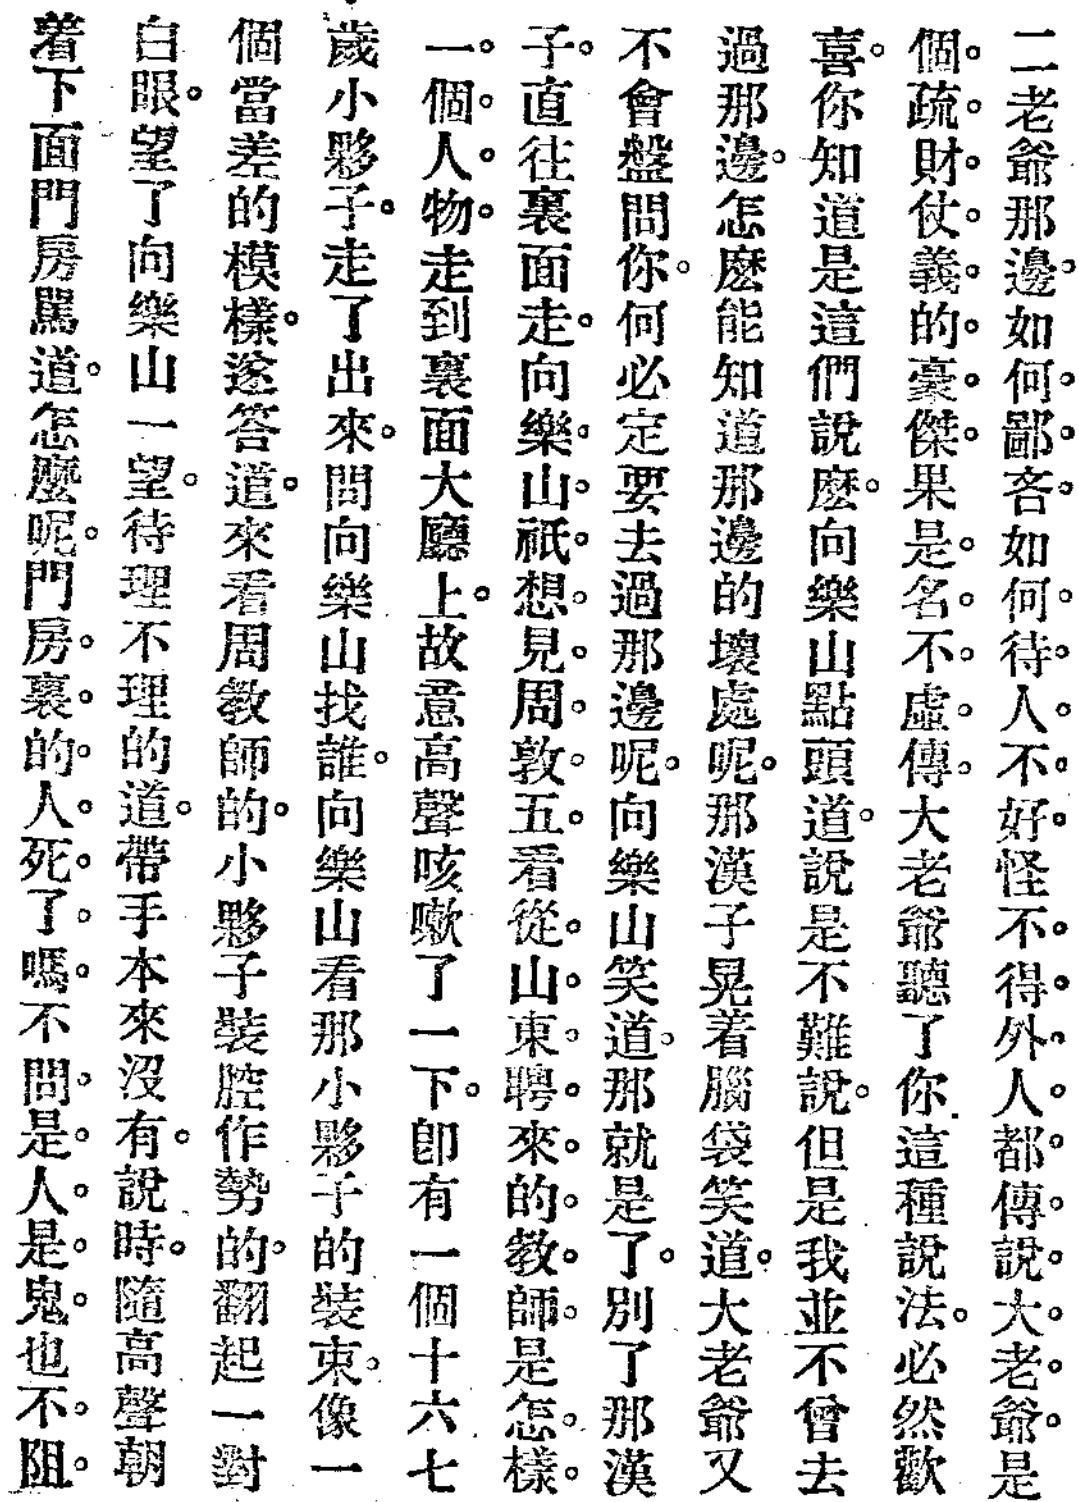 二老爺那邊。如何。鄙。吝。如何。待。人。不。好。怪不。得。外。人。都。傳。說。大。老。爺。是
個。疏。財。仗。義。的。豪。傑。果是。名。不。虛。傳。大老爺聽了你這種說法。必然歡
喜。你知道是這們說麽。向樂山點頭道。說是不難說。但是我並不曾去
過那邊。怎麽能知道那邊的壞處呢。那漢子晃着腦袋笑道。大老爺又
不會盤問你。何必定要去過那邊呢。向樂山笑道。那就是了。別了那漢
子。直往裏面走。向樂。山。祇。想。見。周。敦。五。看從。山。東。聘。來。的。教。師。是怎。樣。
一。個。人。物。走到裏面大廳上。故意高聲咳嗽了一下。卽有一個十六七
歲小夥子。走了出來。問向樂山找誰。向樂山看那小夥子的裝束。像一
個當差的模樣。遂答道。來看周教師的。小夥子裝腔作勢的。翻起一對
白眼。望了向樂山一望。待理不理的道。帶手本來沒有。說時。隨高聲朝
着下面門房罵道。怎麼呢。門房。裏。的。人。死。了。嗎。不問。是。人。是。鬼。也不。阻。